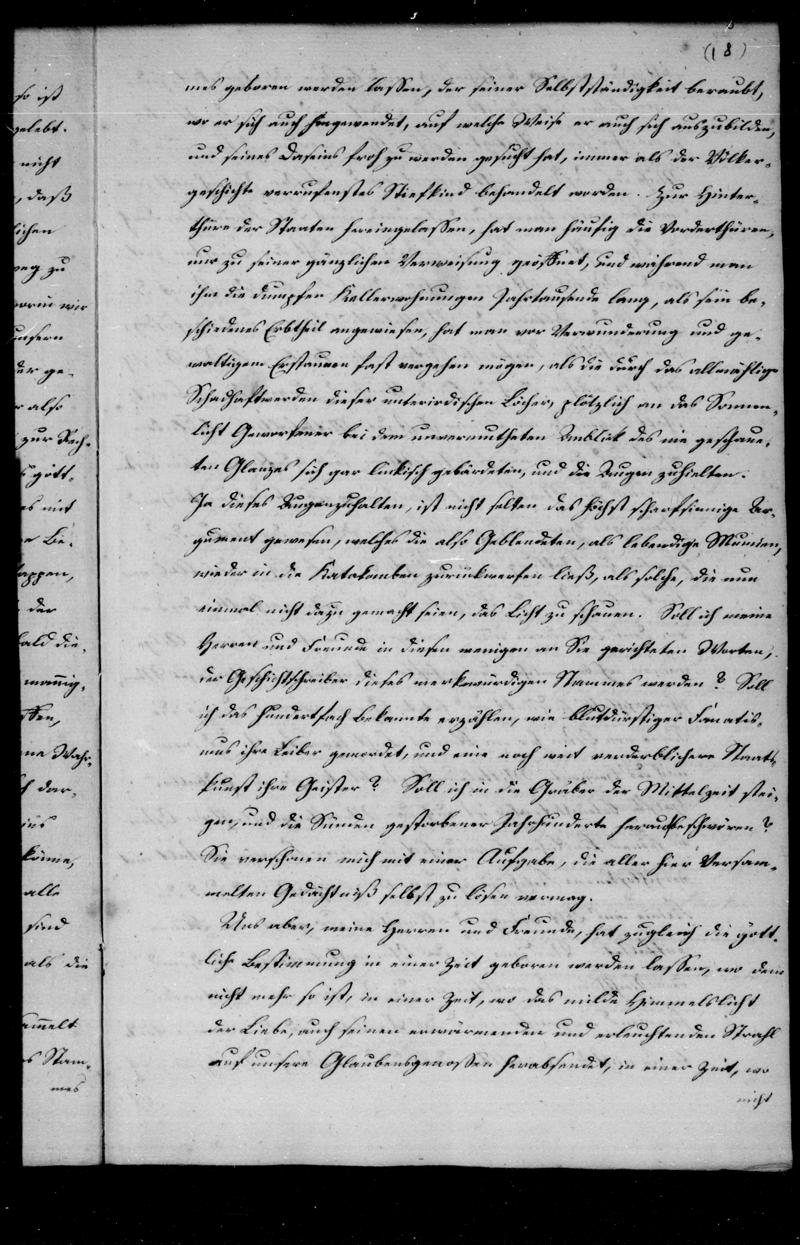 (18)
mes geboren werden lassen, der seiner Selbstständigkeit beraubt,
wo er sich auch hingewendet, auf welche Weise er auch sich auszubilden,
und seines Daseins froh zu werden gesucht hat, immer als der Völker-
geschichte verrufenstes Stiefkind behandelt worden. Zur Hinter-
thüre der Staaten hereingelassen, hat man häufig die Vorderthüren,
nur zu seiner gänzlichen Verweisung geöffnet, und während man
ihm die dumpfen Kellerwohnungen Jahrtausende lang, als sein be-
schiedenes Erbtheil angewiesen, hat man vor Verwunderung und ge-
waltigem Erstaunen fast vergehen mögen, als die durch das allmählige
Schadhaftwerden dieser unterirdischen Löcher, plötzlich an das Sonnen-
licht Geworfener bei dem unvermutheten Anblick des nie geschaue-
ten Glanzes sich gar linkisch gebärdeten, und die Augen zuhielten.
Ja dieses Augenzuhalten, ist nicht selten das höchst scharfsinnige Ar-
gument gewesen, welches die also Geblendeten, als lebendige Mumien,
wieder in die Katakomben zurückwerfen ließ, als solche, die nun
einmal nicht dazu gemacht seien, das Licht zu schauen. Soll ich meine
Herren und Freunde in diesen wenigen an Sie gerichteten Worten,
der Geschichtschreiber dieses merkwürdigen Stammes werden? Soll
ich das hundertfach Bekannte erzählen, wie blutdürstiger Fanatis-
mus ihre Leiber gemordet, und eine noch weit verderblichere Staats-
kunst ihre Geister? Soll ich in die Gräber der Mittelzeit stei-
gen, und die Sünden gestorbener Jahrhunderte heraufbeschwören?
Sie verschonen mich mit einer Aufgabe, die aller hier Versam-
melten Gedächtniß selbst zu lösen vermag.
Uns aber, meine Herren und Freunde, hat zugleich die gött-
liche Bestimmung in einer Zeit geboren werden lassen, wo dem
nicht mehr so ist, in einer Zeit, wo das milde Himmelslicht
der Liebe, auch seinen erwärmenden und erleuchtenden Strahl
auf unsere Glaubensgenossen herabsendet, in einer Zeit, wo
nicht
so ist
gelebt.
nicht
, daß
lichen
weg zu
worin wir
unsern
der ge-
r also
zur Sech-
gött-
es mit
e Lie-
tappen,
der
bald die-
mannig-
ssen,
ne Wahr-
dar-
ins
könne,
alle
sind
als die
ammelt
s Stam-
mes